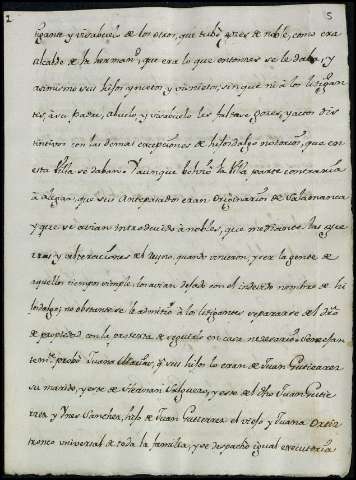 2 5
tigante y visabuelo de los otros, que tubo goces de noble, como era
Alcalde de la hermand, que era lo que entonces se le daba, y
asimismo sus hijos y nietos y visnietos, sin que ni à los litigan-
tes, à su padre, abuelo, y visabuelo les faltase goces, y actos dis
tintivos con las demas excepciones de hijosdalgo notorios, que en
esta Villa se daban. Y aunque bolvió la Villa parte contraria
à alegar, que sus Antepasados eran originarios de Salamanca
y que se avian introducido à nobles, que mediante las gue
rras y alteraciones del Reyno, quando vinieron, y ser la gente de
aquellos tiempos simple los avian dejado con el indevido nombre de hi
josdalgo; no obstante se le admitió à los litigantes separarse del dro
de propiedad con la protexta de seguirlo en caso necesario. Y en efan
temte probó Juana Macias, q sus hijos lo eran de Juan Gutierrez
su marido, y este de Hernan Salguero, y este del dho Juan Gutie
rrez y Ynes Sanchez, hijo de Juan Gutierrez el viejo y Juana Ortiz
tronco universal de toda la familia, y se despachó igual executoria